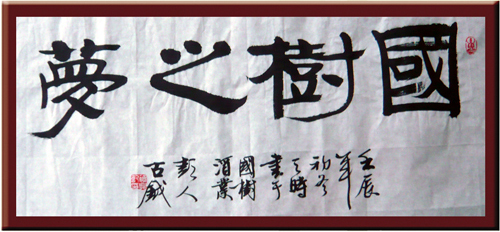 國樹之夢
壬辰
年
初冬
之時
書于
國樹
酒業
彭人
古